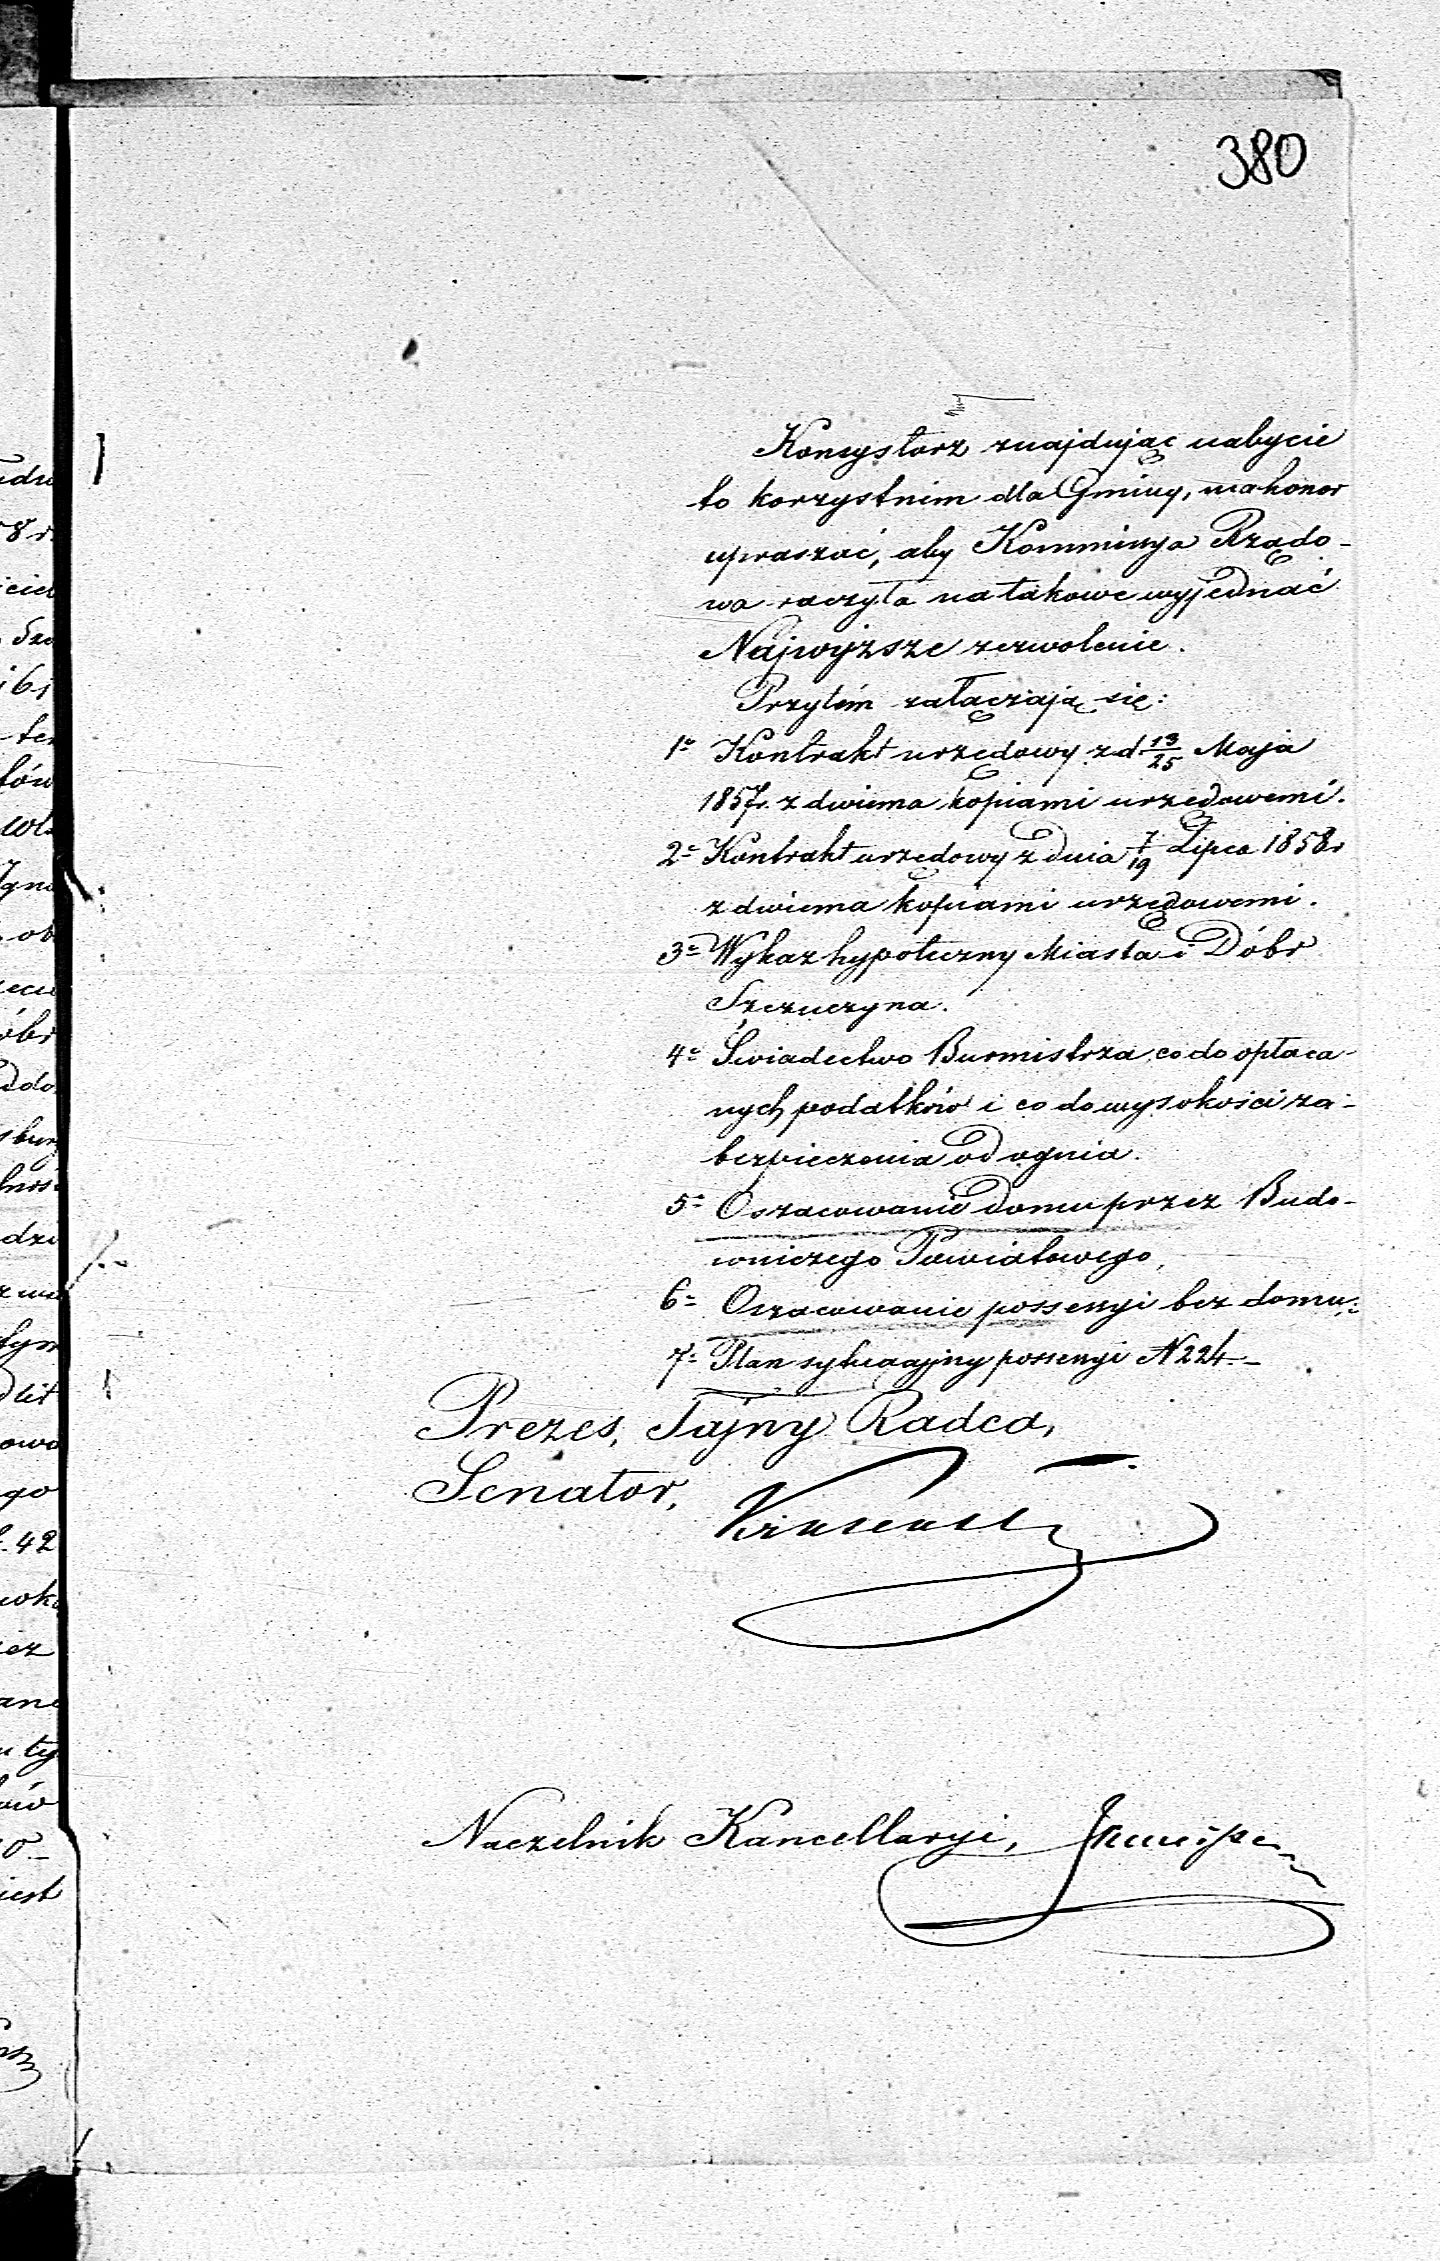 380
Konsystorz znajdując nabycie
to korzystnim dla Gminy, ma honor
upraszać, aby Kommissya Rządo-
wa raczyła na takowe wyjednać
Najwyższe zezwolenie.
Przytém załączają się:
1e Kontrakt urzędowy z d 13/25 Maja
1857r. z dwiema kopiami urzędowemi.
2e Kontrakt urzędowy z dnia 7/19 Lipca 1858r
z dwiema kopiami urzędowemi.
3e Wykaz hypoteczny Miasta i Dóbr
Szczuczyna.
4e Świadectwo Burmistrza co do opłaca-
nych podatków i co do wysokości za-
bezpieczenia od ognia.
5e Oszacowanie domu przez Budo-
wniczego Powiatowego,
6e Oszacowanie possessyi bez domu;
7e Plan sytuacyjny possessyi N 224.-
Prezes, Tajny Radca,
Senator,
Naczelnik Kancellaryi,